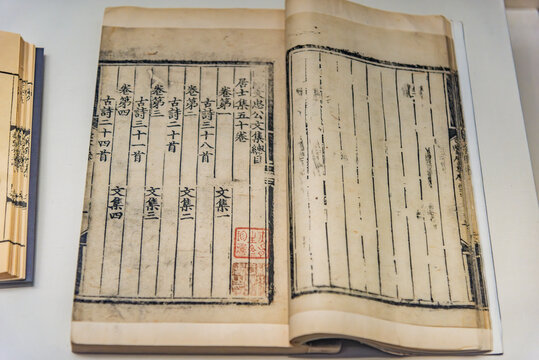 文忠公文集總目
居士集五十卷
卷第一 文集一
古詩三十八首
卷第二 文集二
古詩二十首
卷第三 文集三
古詩三十一首
卷第四 文集四
古詩二十四首